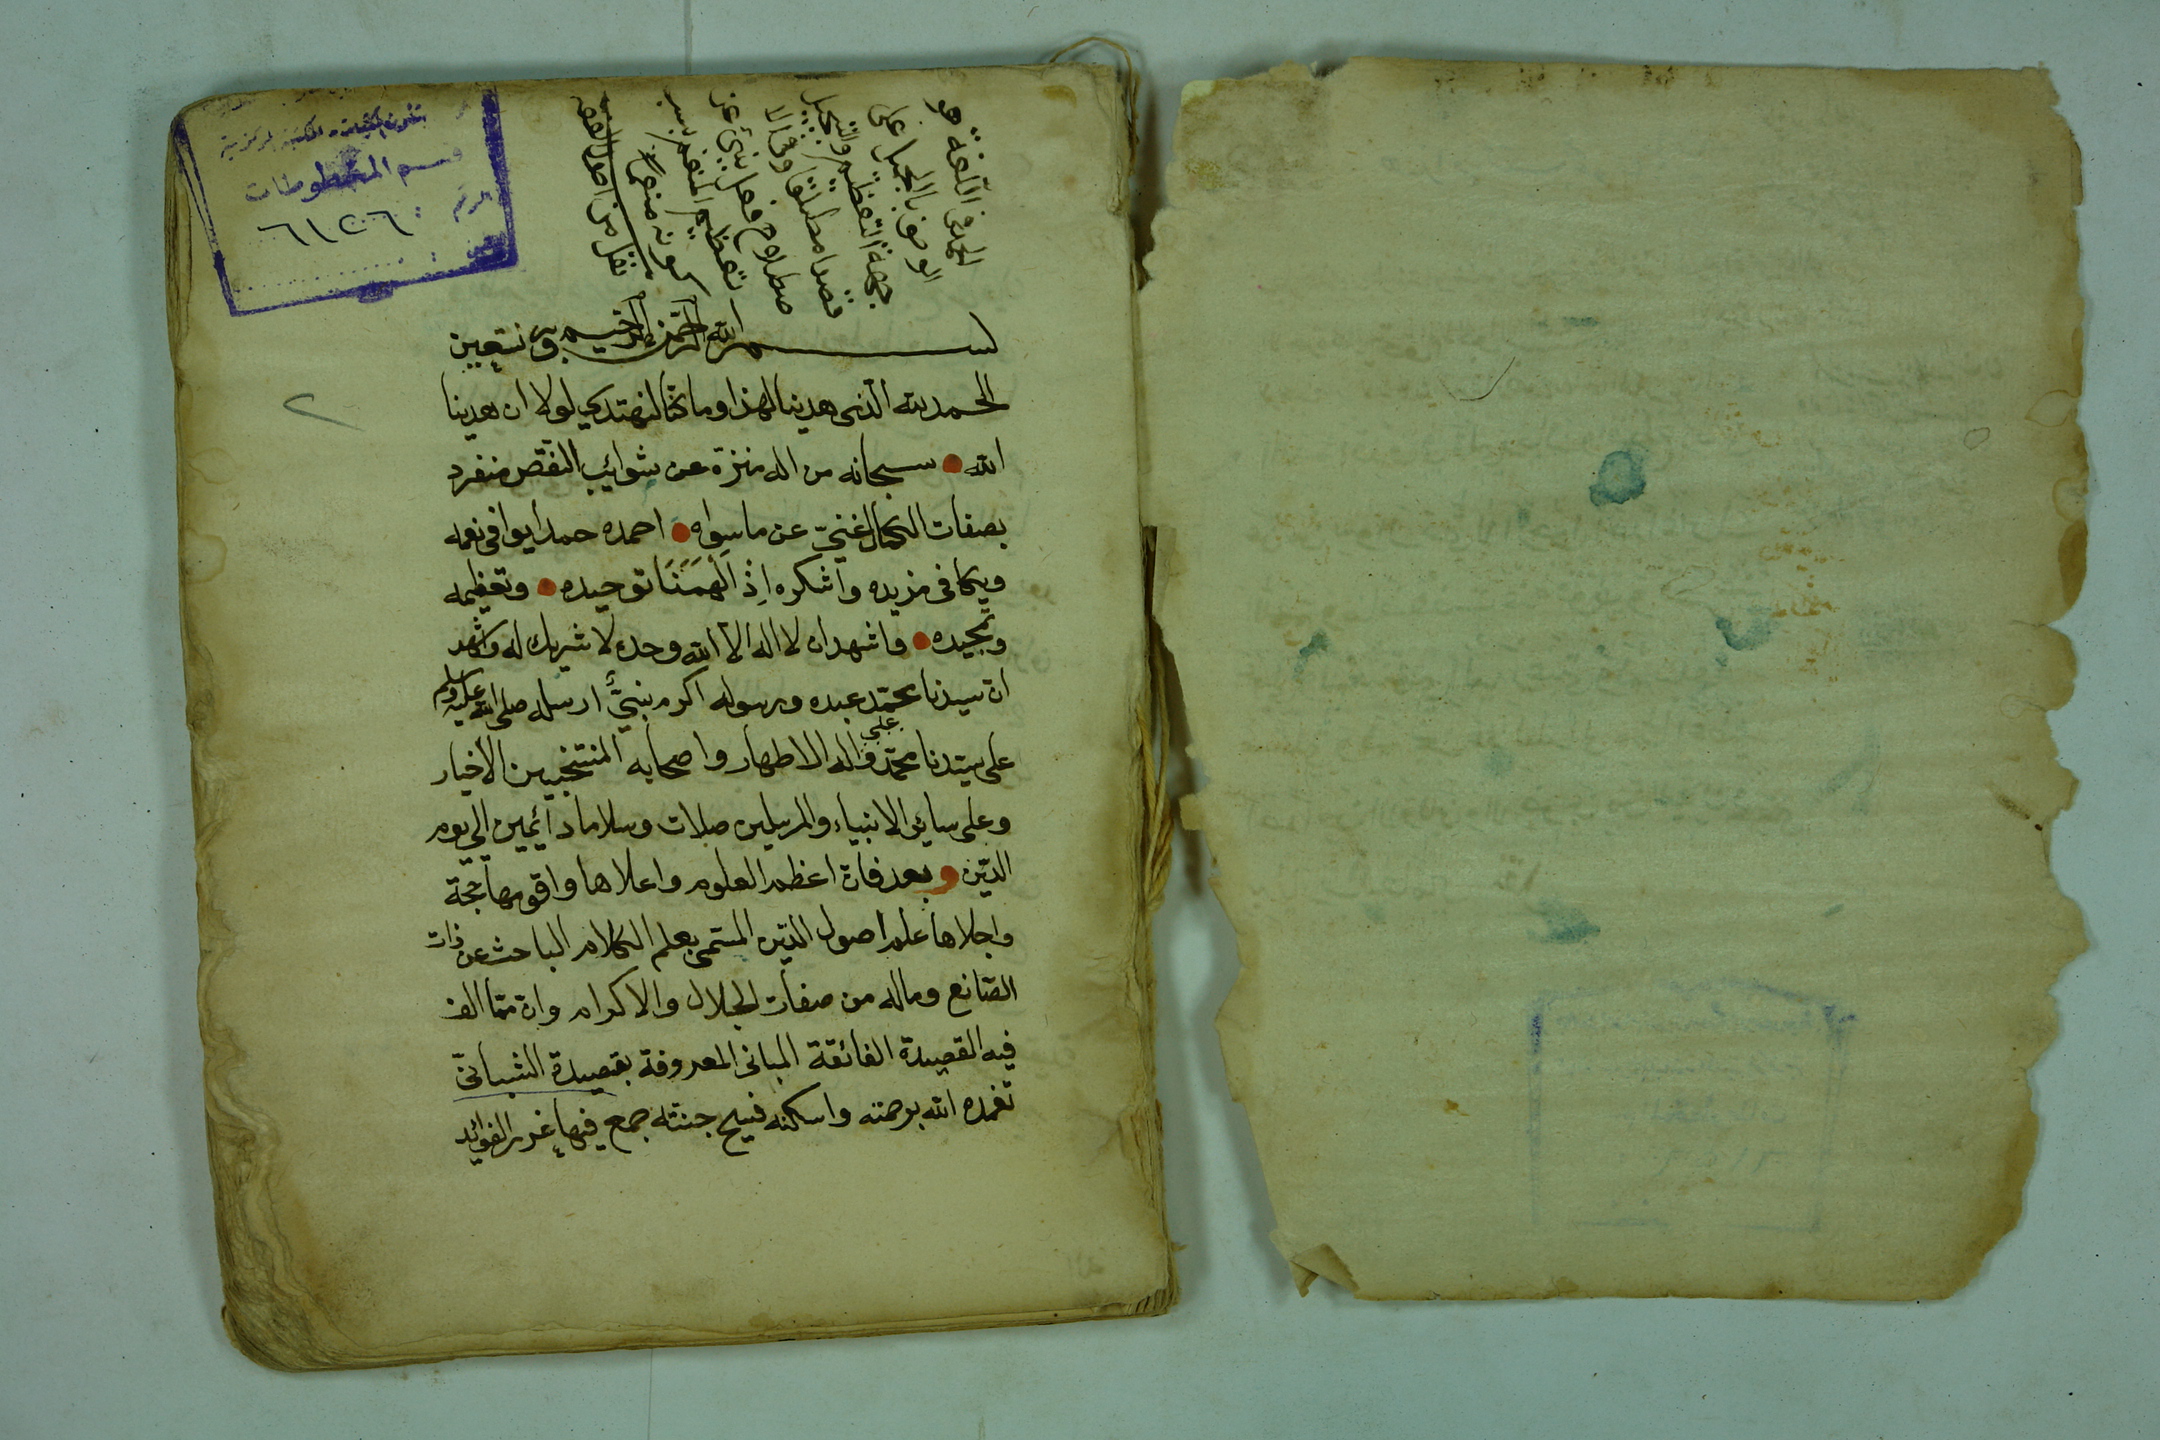 الحمد في اللغة هو
الوصف بالجميل على
جهة التعظيم والتبجيل
قصدا مطلقا وفي الا
صطلاح فعل ينبئ عن
تعظيم المنعم بسبب
كونه منعما
نقل من اصول الفقه
شؤون المكتبات - المكتبة المركزية
قسم المخطوطات
الرقم : ٦١٢٠٦
بسم الله الرحمن الرحيم وبه نستعين
٢
الحمد لله الذي هدينا لهذا وما كنا لنهتدي لولا ان هدينا
الله سبحانه من اله منزه عن شوائب النقص منفرد
بصفات الكمال الغني عن ما سواه احمده حمدا يوافي نعمه
ويكافي مزيده واشكره اذ الهمنا توحيده وتعظيمه
وتمجيده واشهد ان لا اله الا الله وحده لا شريك له واشهد
ان سيدنا محمد عبده ورسوله اكرم نبي ارسله صلى الله عليه وسلم
على سيدنا محمد وعلى اله الاطهار واصحابه المنتخبين الاخيار
وعلى سائر الانبياء والمرسلين صلات وسلاما دائمين الى يوم
الدين وبعد فان اعظم العلوم واعلاها واقومها حجة
واجلاها علم اصول الدين المسمى بعلم الكلام الباحث عن ذات
الصانع وماله من صفات الجلال والاكرام وان مما الف
فيه القصيدة الفائقة المباني المعروفة بقصيدة الشيباني
تغمده الله برحمته واسكنه فسيح جنته جمع فيها غرر الفوائد